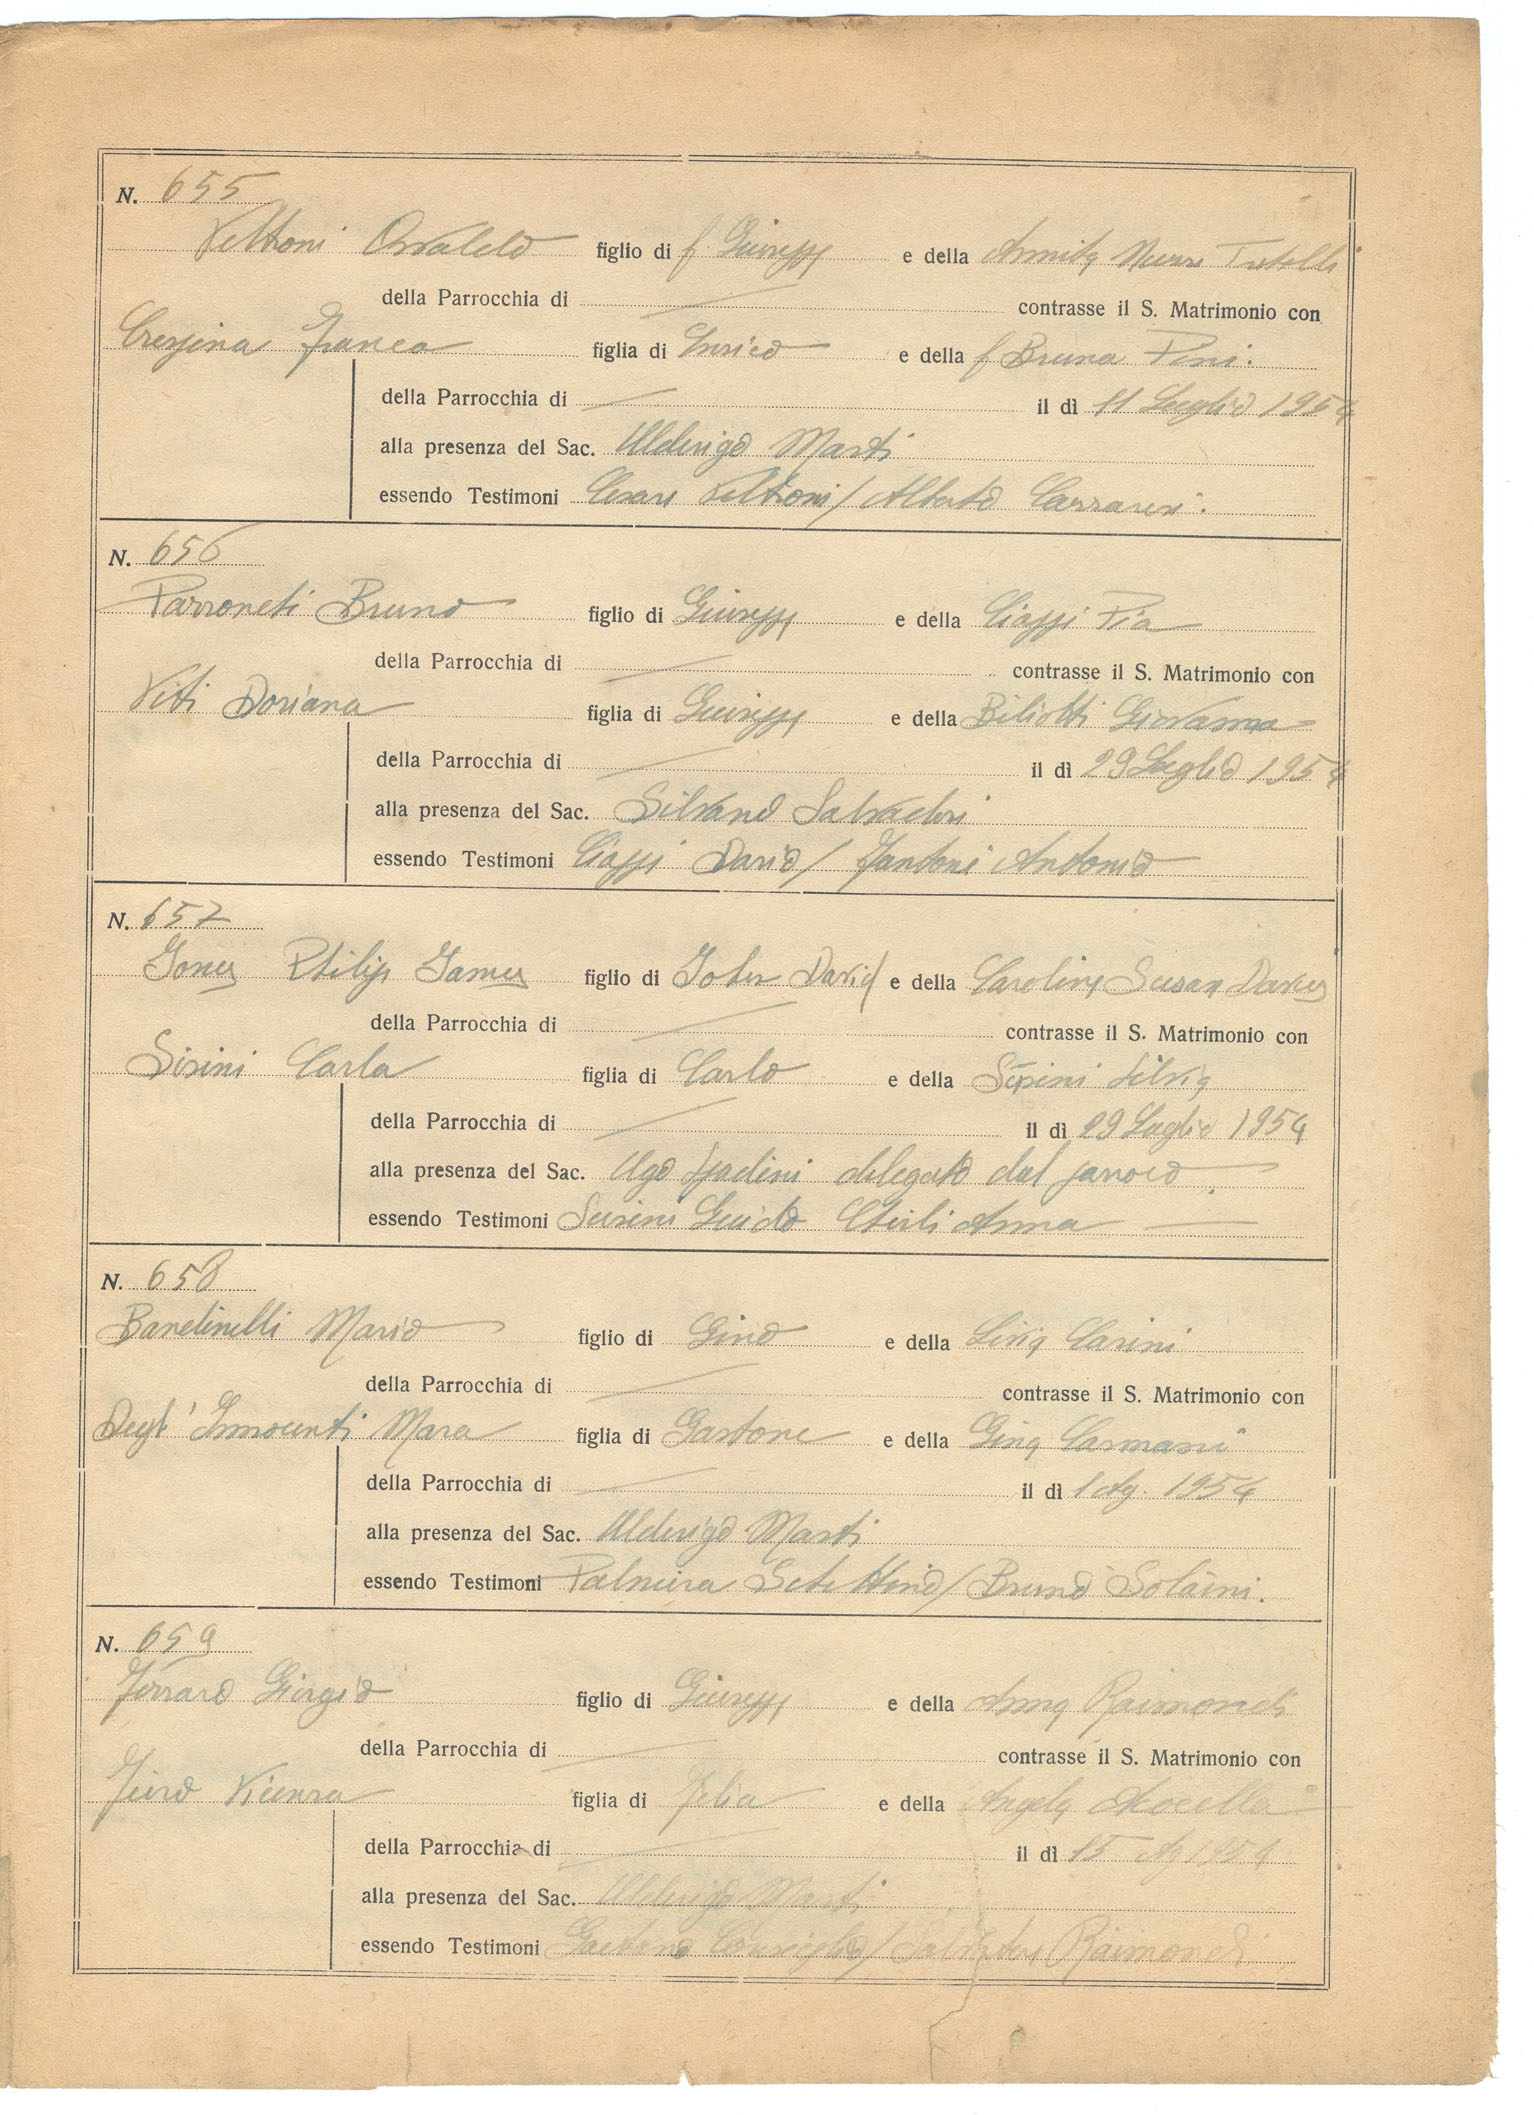 N. 655
Veltroni Osvaldo figlio di f Giuseppe e della Armita Nunzi
della Parrocchia di contrasse il S. Matrimonio con
Crespina Franca figlia di Enrico e della f Bruna Pini.
della Parrocchia di il dì 11 Luglio 1954
alla presenza del Sac. Alderigo Marti
essendo Testimoni Cesare Veltroni / Alberto Carraresi.
N. 656
Parroneti Bruno figlio di Giuseppe e della Ciappi Pia
della Parrocchia di contrasse il S. Matrimonio con
Viti Doriana figlia di Giuseppe e della Biliotti Giovanna
della Parrocchia di il dì 29 Luglio 1954
alla presenza del Sac. Silvano Salvadori
essendo Testimoni Ciappi Dario / Fantoni Antonio
N. 657
Jones Philip James figlio di John David e della Caroline Susan Davies
della Parrocchia di contrasse il S. Matrimonio con
Sisini Carla figlia di Carlo e della Silvia
della Parrocchia di il dì 29 Luglio 1954
alla presenza del Sac. Ugo Spadini delegato dal parroco.
essendo Testimoni Guido Anna
N. 658
Bandinelli Mario figlio di Gino e della Lina Carini
della Parrocchia di contrasse il S. Matrimonio con
Degl' Innocenti Mara figlia di Gastone e della Gina
della Parrocchia di il dì 1 Ag. 1954
alla presenza del Sac. Alderigo Marti
essendo Testimoni Palmira / Bruno Solaini.
N. 659
Ferraro Giorgio figlio di Giuseppe e della Anna Raimondi
della Parrocchia di contrasse il S. Matrimonio con
Vicenza figlia di e della Angela
della Parrocchia di il dì 15 Ag 1954
alla presenza del Sac. Alderigo Marti
essendo Testimoni Gaetano Consiglio / Salvatore Raimondi